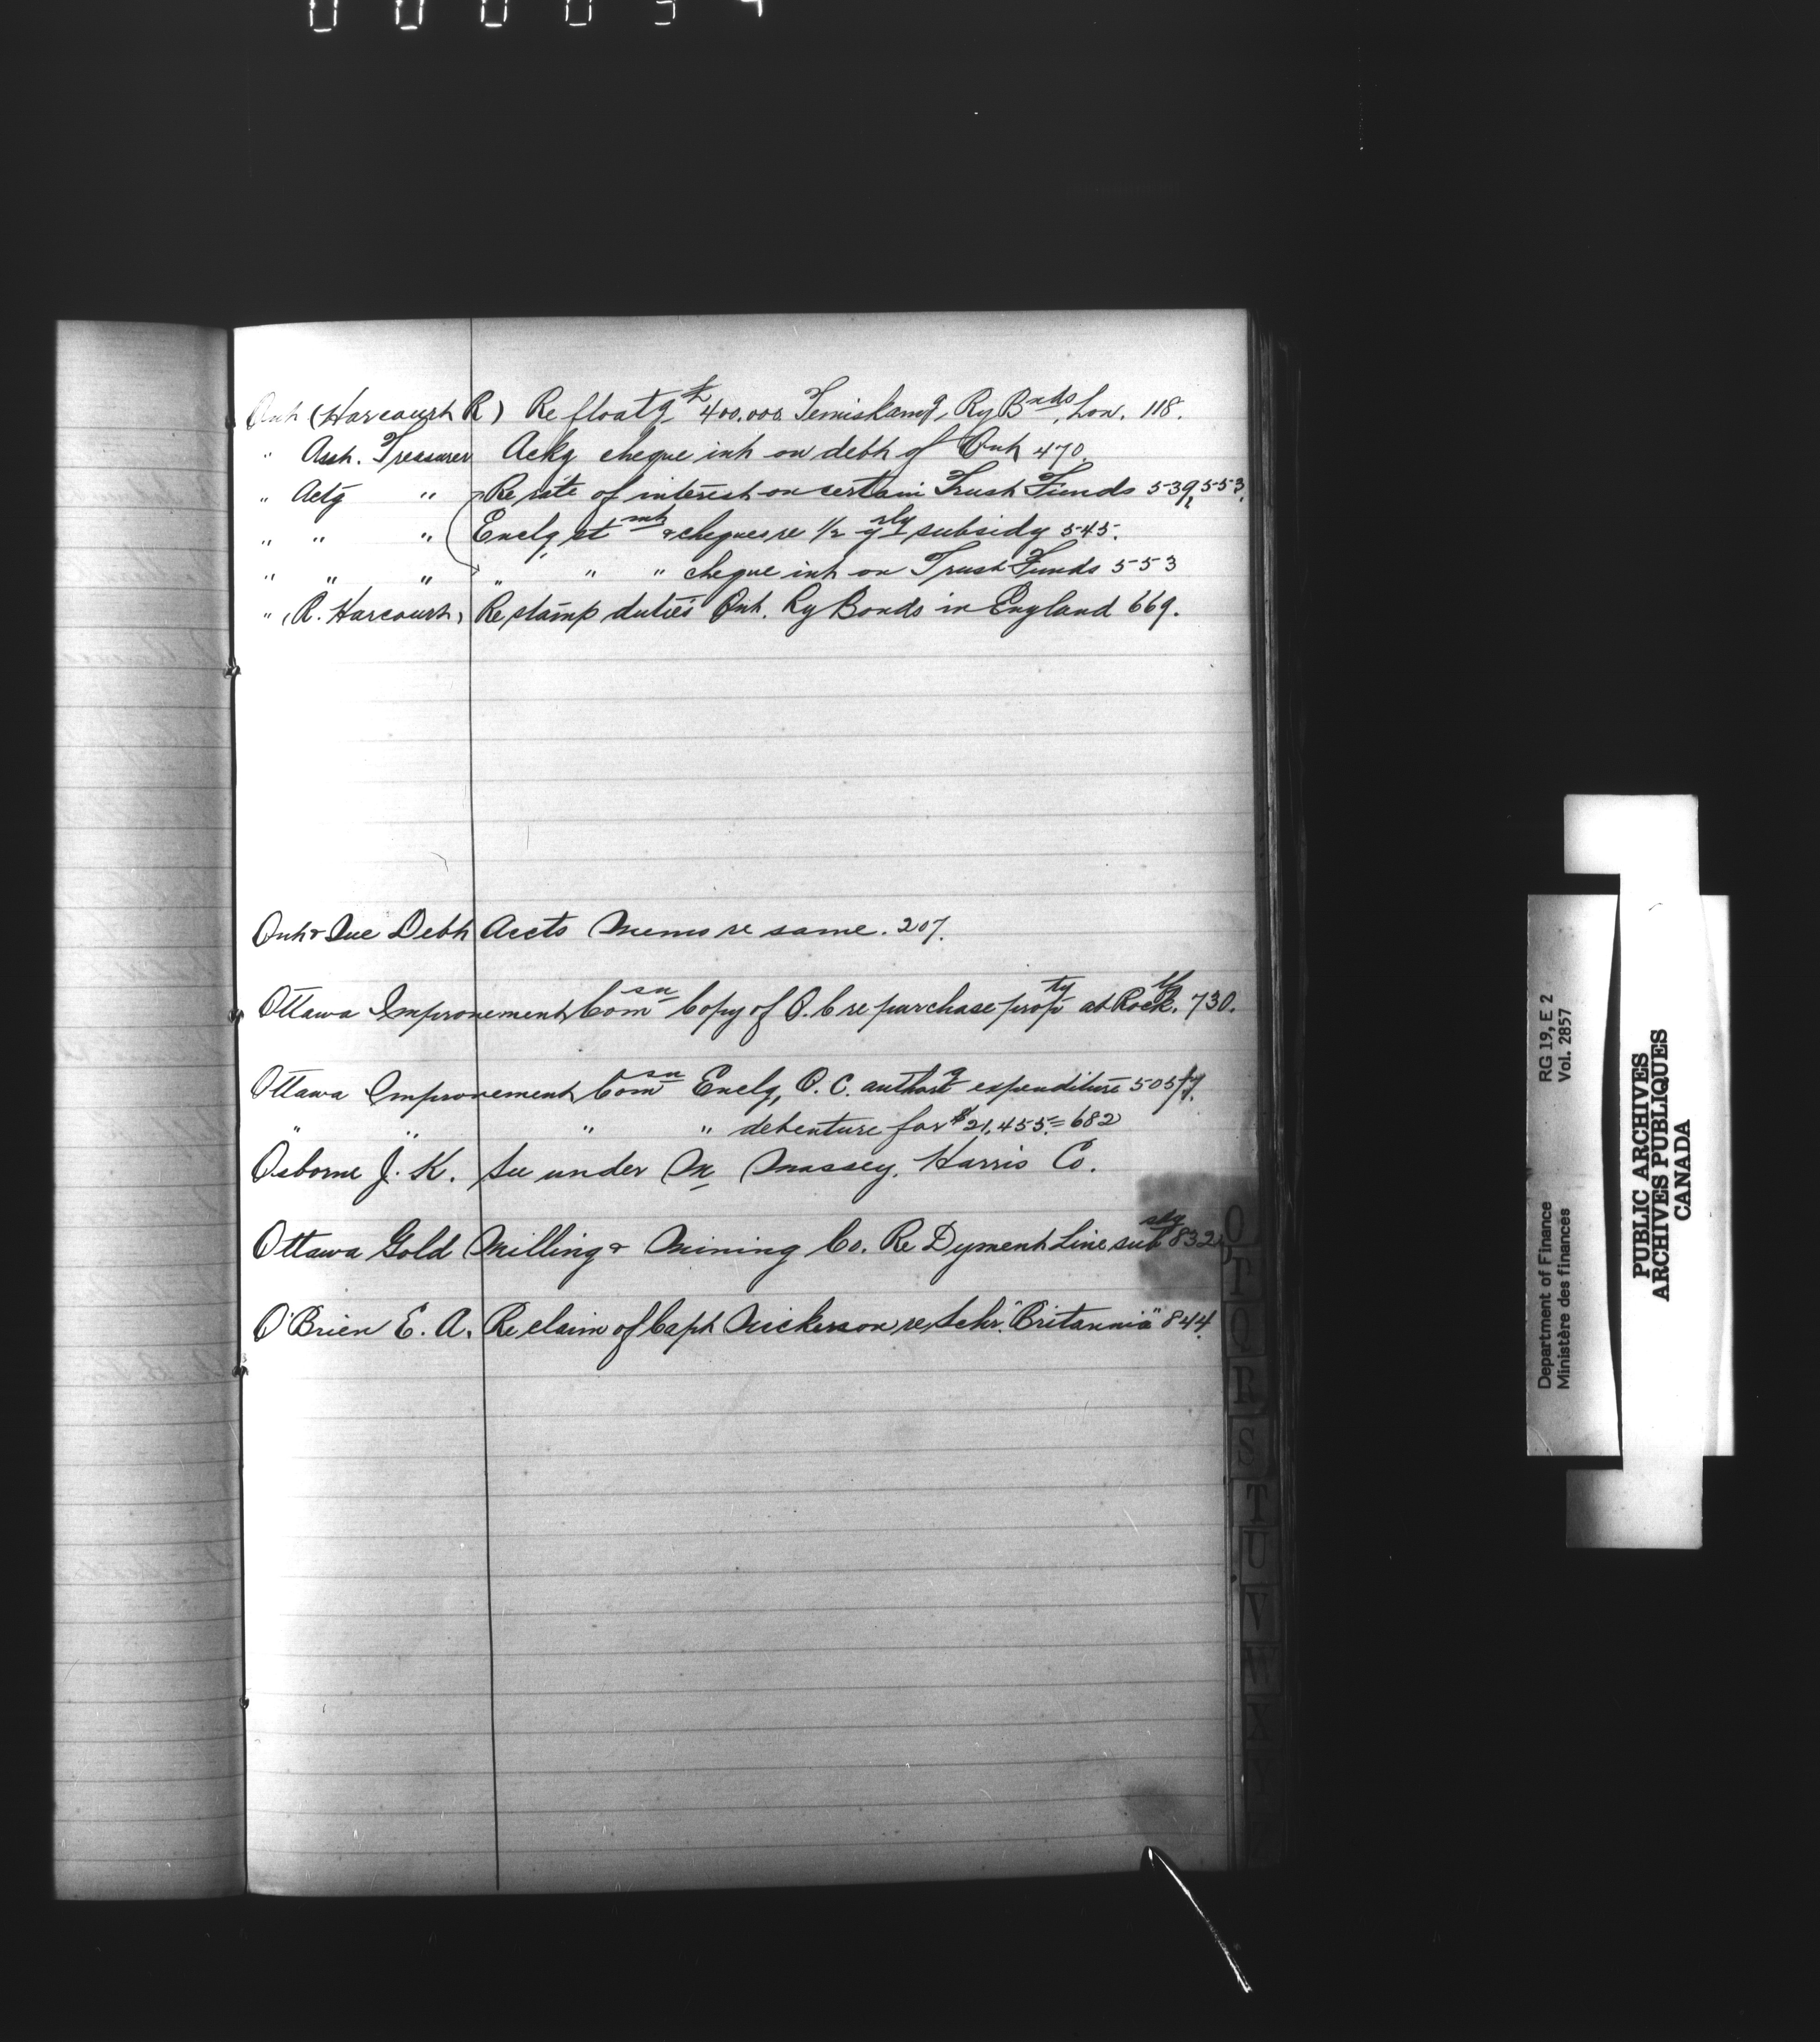 Ont (Harcourt R) Re floatg £400.000 Temiskamg Ry Bnds, Lon. 118.
" Asst. Treasurer Ackg cheque int on debt of Ont 470.
" Actg " Re rate of interest on certain Trust Funds 539, 553.
" " " Enclg stmt & cheques re 1/2 yrly subsidy 545.
" " " " " " cheque int on Trust Funds 553
" (R. Harcourt) Re stamp duties Ont. Ry Bonds in England 669.
Ont & Que Debt Accts Memo re same. 207.
Ottawa Improvement Comsn Copy of O.C re purchase propty at Rock. 730.
Ottawa Improvement Comsn Enclg, O.C. authorg expenditure 505
" " " " debenture for $21,455.= 682
Osborne J. K. See under M Massey, Harris Co.
Ottawa Gold Milling & Mining Co. Re Dyment Line 832
O'Brien E. A. Re claim of Capt Nickerson re Schr. "Britannia" 844
O
Q
R
S
T
U
V
W
X
Y
Z
RG 19, E 2
Vol. 2857
Department of Finance
Ministère des finances
PUBLIC ARCHIVES
ARCHIVES PUBLIQUES
CANADA